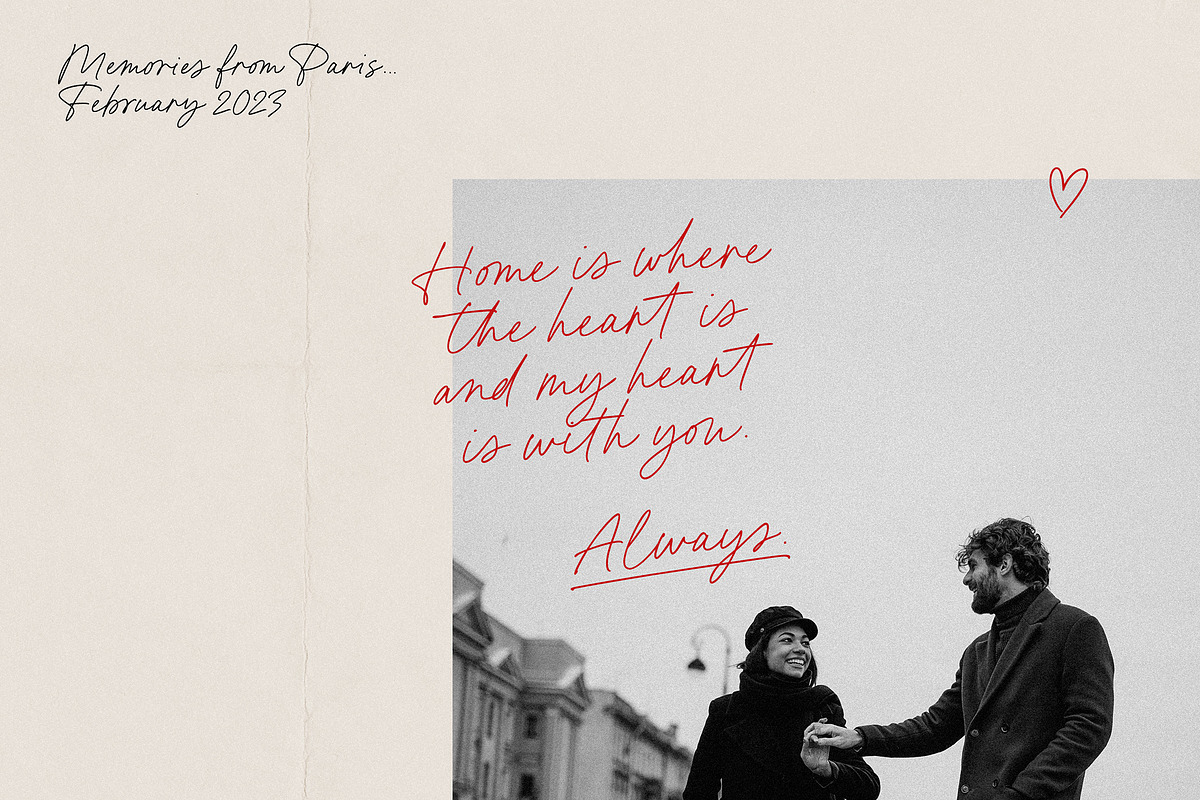 Memories from Paris...
February 2023
Home is where
the heart is
and my heart
is with you.
Always.